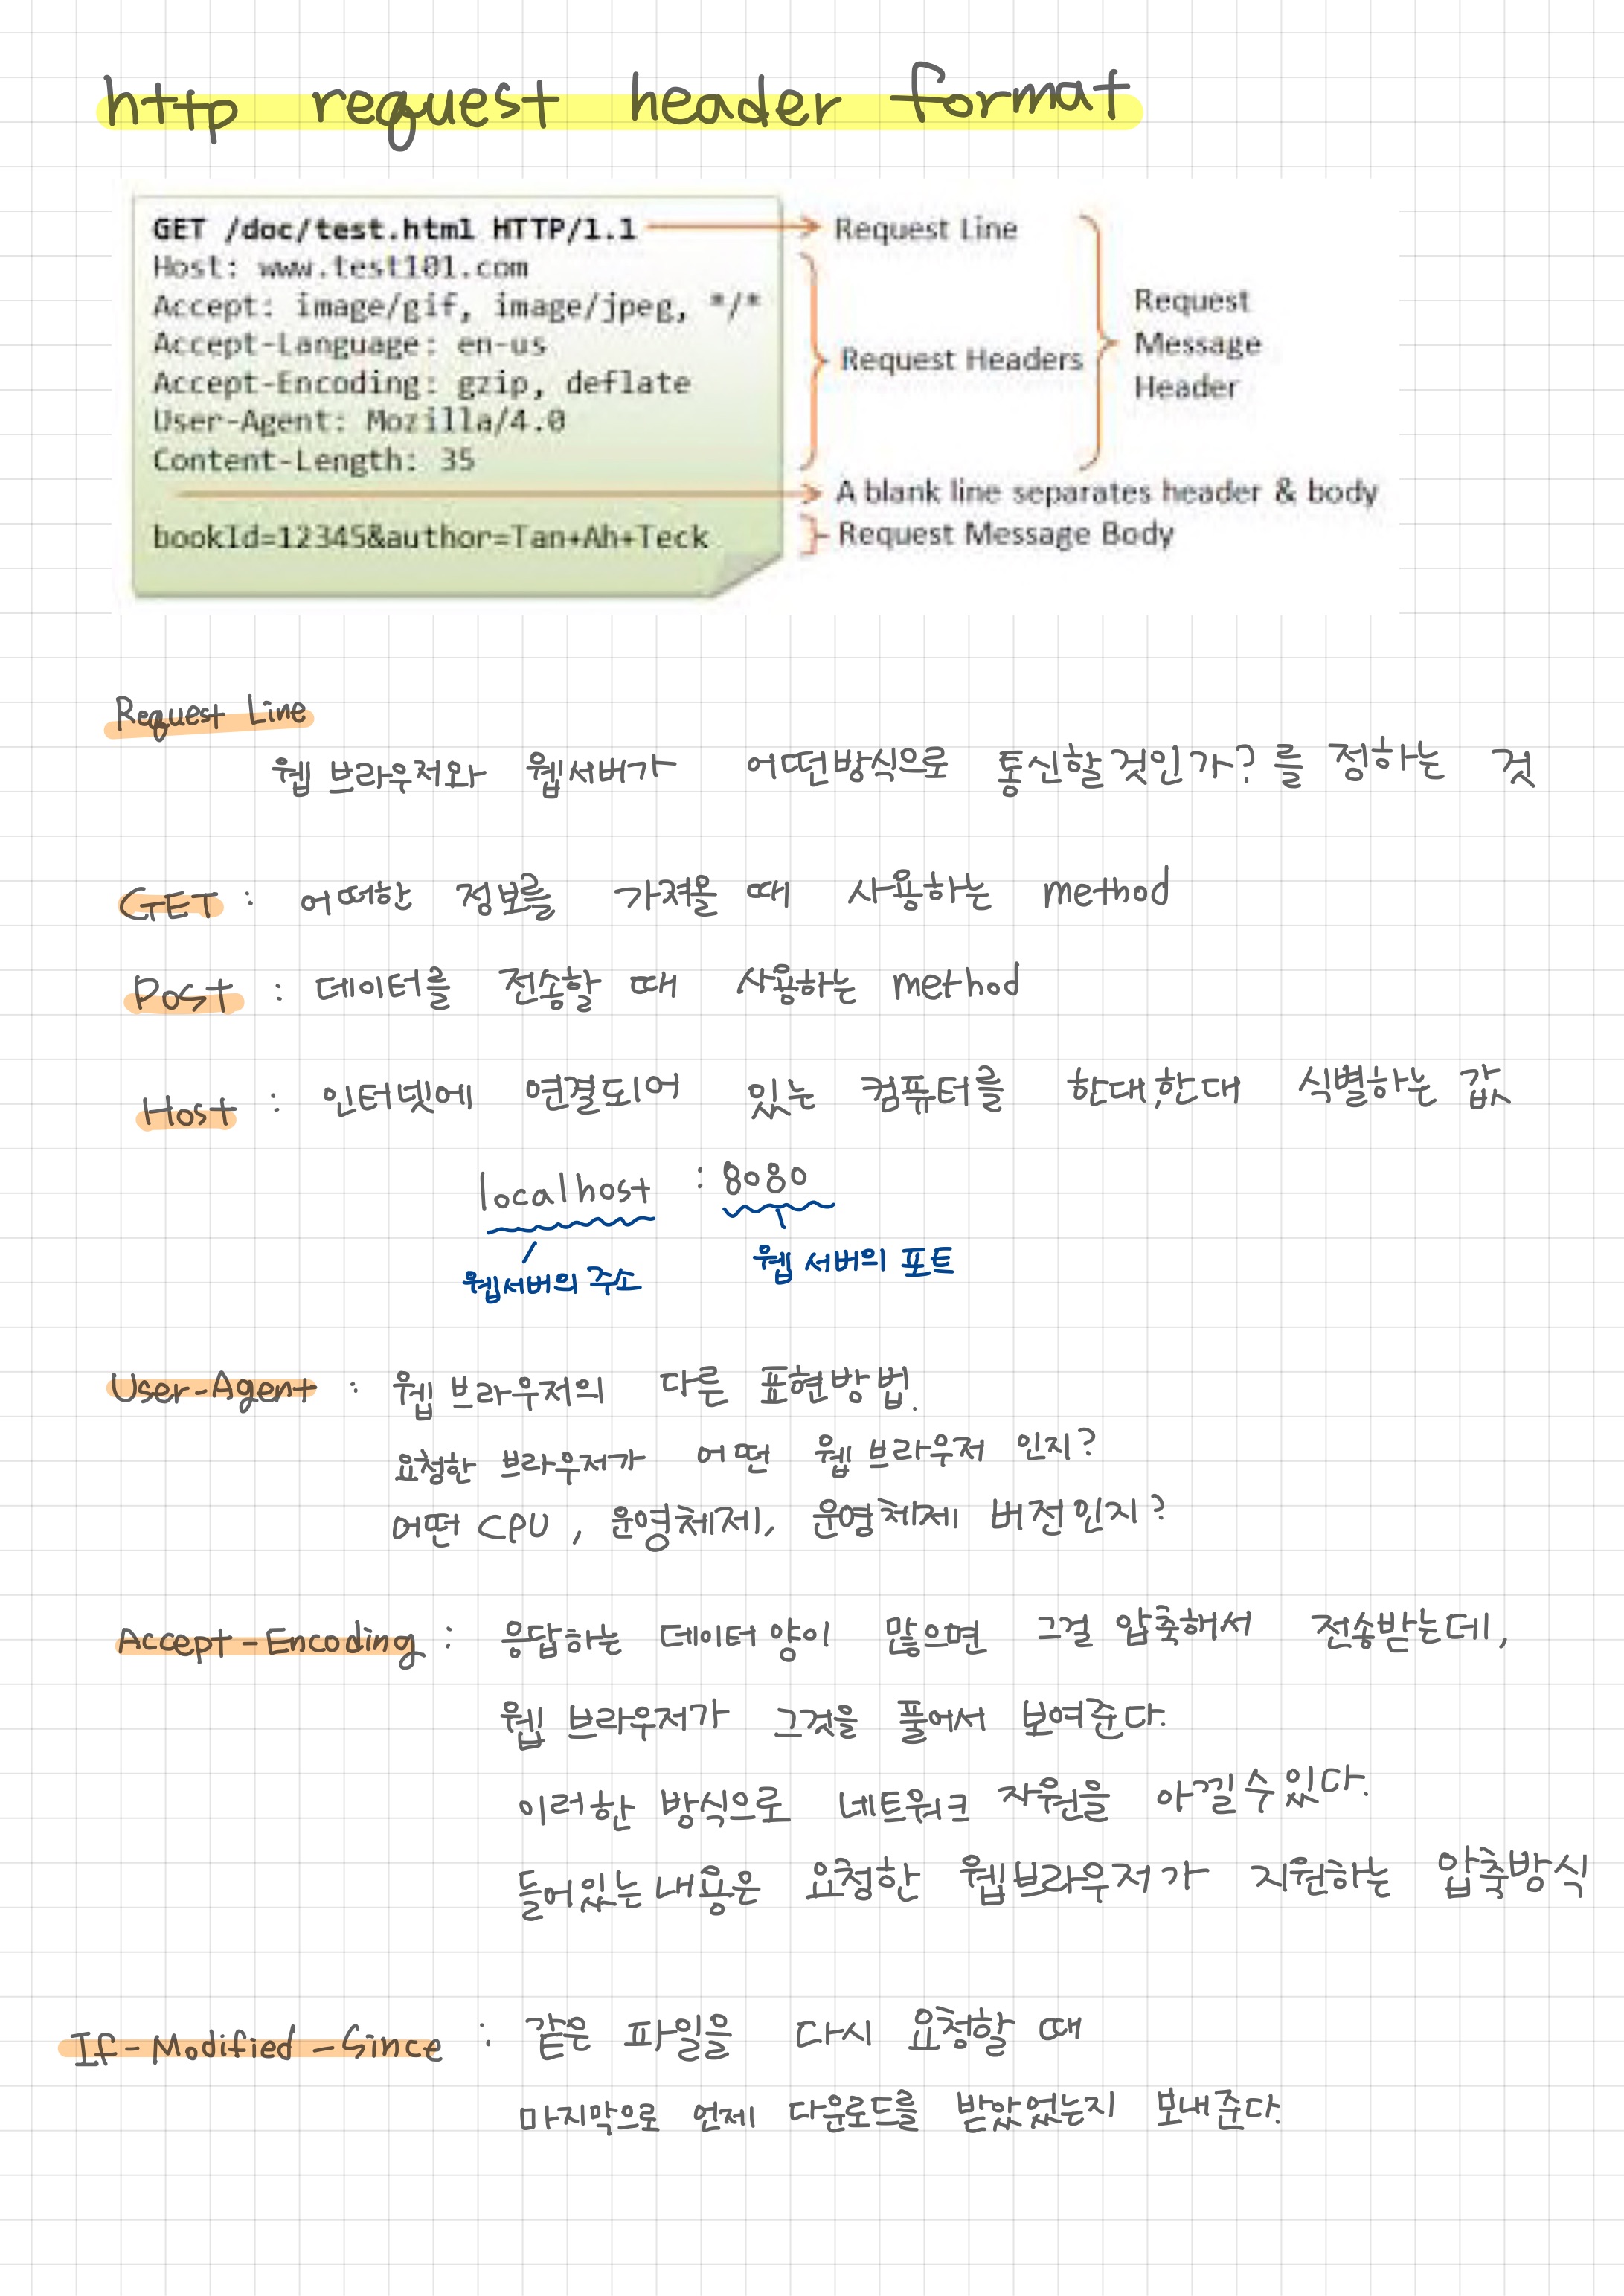 http request header format
GET /doc/test.html HTTP/1.1
Request Line
Host: www.test101.com
Accept: image/gif, image/jpeg, */*
Accept-Language: en-us
Accept-Encoding: gzip, deflate
User-Agent: Mozilla/4.0
Content-Length: 35
Request Headers
Request
Message
Header
A blank line separates header & body
bookId=12345&author=Tan+Ah+Teck
Request Message Body
Request Line
웹 브라우저와 웹서버가 어떤방식으로 통신할것인가?를 정하는 것
GET : 어떠한 정보를 가져올 때 사용하는 method
Post : 데이터를 전송할 때 사용하는 method
Host : 인터넷에 연결되어 있는 컴퓨터를 한대,한대 식별하는 값
localhost : 8080
웹서버의 주소 웹 서버의 포트
User-Agent : 웹 브라우저의 다른 표현방법.
요청한 브라우저가 어떤 웹 브라우저 인지?
어떤 CPU, 운영체제, 운영체제 버전인지?
Accept-Encoding : 응답하는 데이터양이 많으면 그걸 압축해서 전송받는데,
웹 브라우저가 그것을 풀어서 보여준다.
이러한 방식으로 네트워크 자원을 아낄수있다.
들어있는내용은 요청한 웹브라우저가 지원하는 압축방식
If-Modified-Since : 같은 파일을 다시 요청할 때
마지막으로 언제 다운로드를 받았었는지 보내준다.